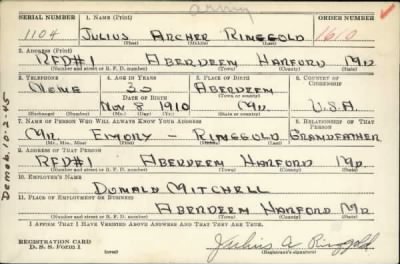 army
SERIAL NUMBER 1. NAME (Print) ORDER NUMBER
1104 JULIUS ARCHER RINGGOLD 1610
(First) (Middle) (Last)
2. ADDRESS (Print)
RFD#1 ABERDEEN HARFORD MD.
(Number and street or R. F. D. number) (Town) (County) (State)
3. TELEPHONE 4. AGE IN YEARS 5. PLACE OF BIRTH 6. COUNTRY OF CITIZENSHIP
NONE 30 ABERDEEN
DATE OF BIRTH (Town or county)
NOV 8 1910 MD. U.S.A
(Exchange) (Number) (Mo.) (Day) (Yr.) (State or country)
7. NAME OF PERSON WHO WILL ALWAYS KNOW YOUR ADDRESS 8. RELATIONSHIP OF THAT PERSON
MR EMORY - RINGGOLD GRANDFATHER
(Mr., Mrs., Miss) (First) (Middle) (Last)
9. ADDRESS OF THAT PERSON
RFD#1 ABERDEEN HARFORD MD.
(Number and street or R. F. D. number) (Town) (County) (State)
10. EMPLOYER'S NAME
DONALD MITCHELL
11. PLACE OF EMPLOYMENT OR BUSINESS
ABERDEEN HARFORD MD
(Number and street or R. F. D. number) (Town) (County) (State)
I AFFIRM THAT I HAVE VERIFIED ABOVE ANSWERS AND THAT THEY ARE TRUE.
REGISTRATION CARD
D. S. S. Form 1 (over) Julius A Ringgold
(Registrant's signature)
Demob. 10-2-45